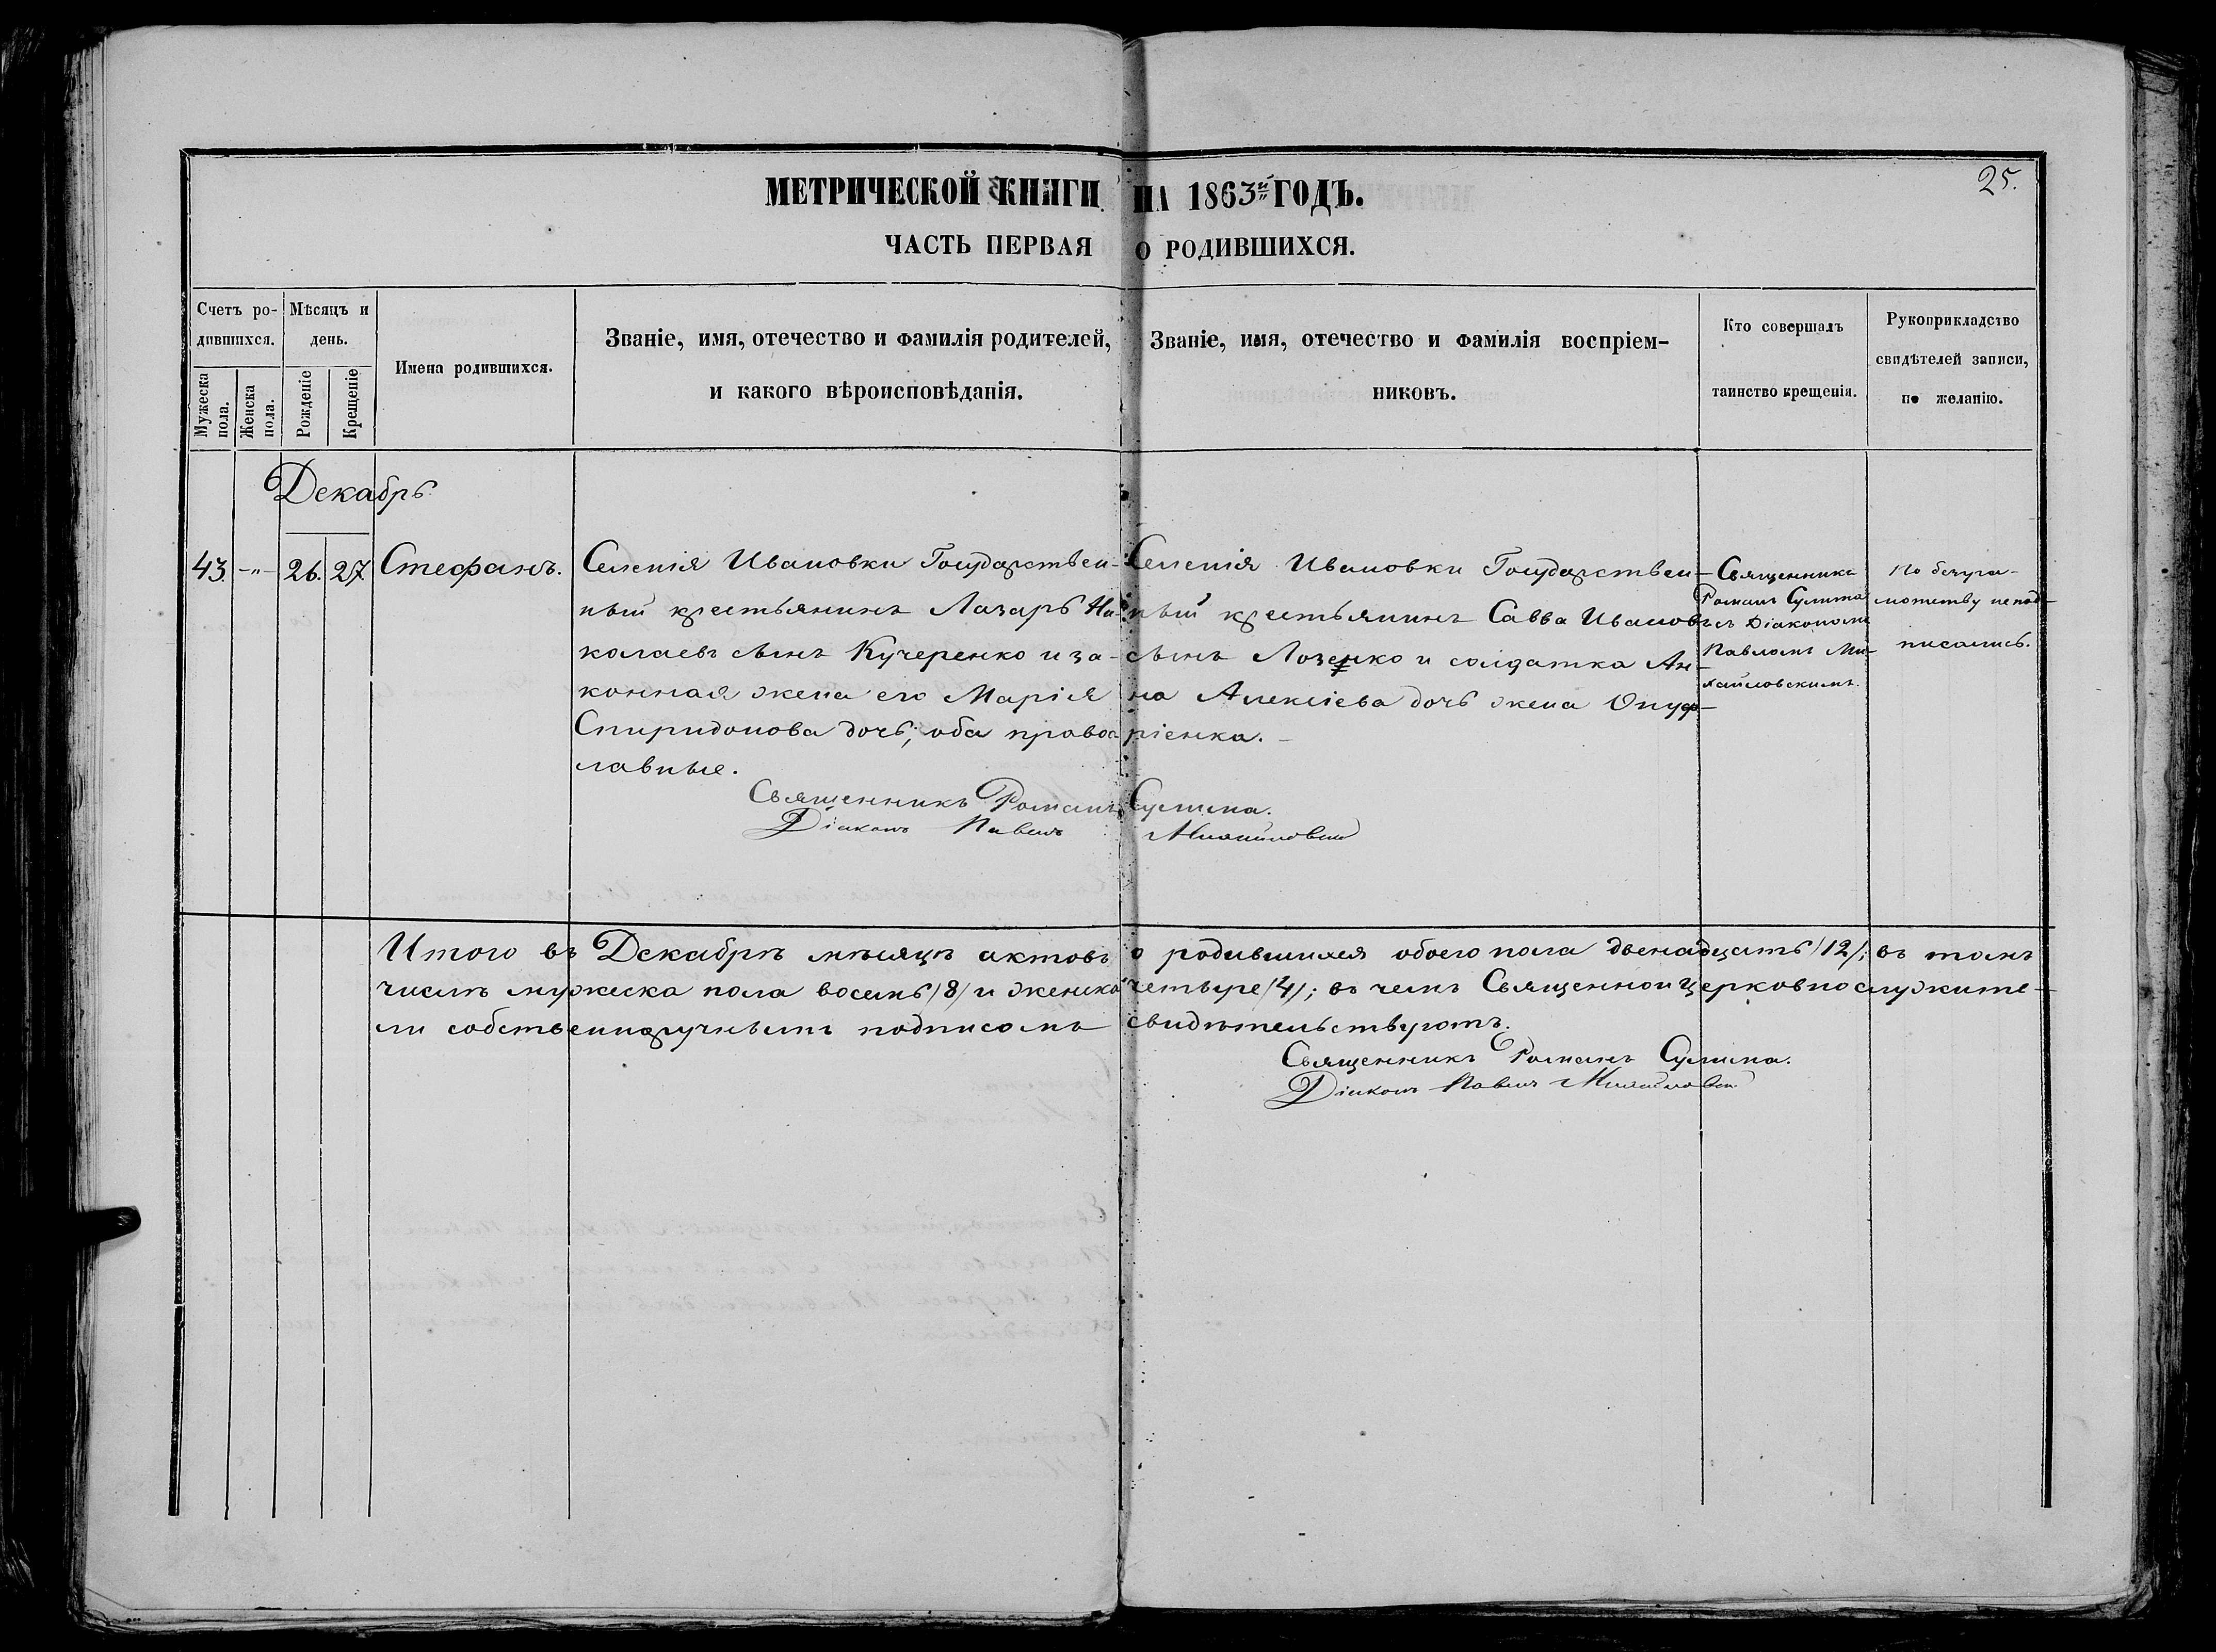 25.
МЕТРИЧЕСКОЙ КНИГИ НА 1863й ГОДЪ.
ЧАСТЬ ПЕРВАЯ О РОДИВШИХСЯ.
Счетъ ро-
дившихся.
Мужеска
пола.
Женска
пола.
Мѣсяцъ и
день.
Рожденіе
Крещеніе
Имена родившихся.
Званіе, имя, отечество и фамилія родителей,
и какого вѣроисповѣданія.
Званіе, имя, отечество и фамилія воспріем-
никовъ.
Кто совершалъ
таинство крещенія.
Рукоприкладство
свидѣтелей записи,
по желанію.
Декабрь
43. -„- 26. 27. Стефанъ.
Селенія Ивановки Государствен-
ный крестьянинъ Лазарь Ни-
колаевъ сынъ Кучеренко и за-
конная жена его Марія
Спиридонова дочь; оба правос
лавные.
Селенія Ивановки Государствен-
ный крестьянинъ Савва Ивановъ
сынъ Лозенко и солдатка Ан-
на Алексіева дочь жена Ануф-
ріенка.
Священникъ
Романъ Сулима
съ Діакономъ
Павломъ Ми-
хайловскимъ.
По безгра-
мотству не под-
писались.
Священникъ Романъ Сулима.
Діаконъ Павелъ Михайловскій
Итого въ Декабрѣ мѣсяцѣ актовъ о родившихся обоего пола двенадцать /12/; въ томъ
числѣ мужеска пола восемь /8/ и женска четыре /4/; въ чемъ Священноицерковнослужите-
ли собственноручнымъ подписомъ свидѣтельствуютъ.
Священникъ Романъ Сулима.
Діаконъ Павелъ Михайловскій